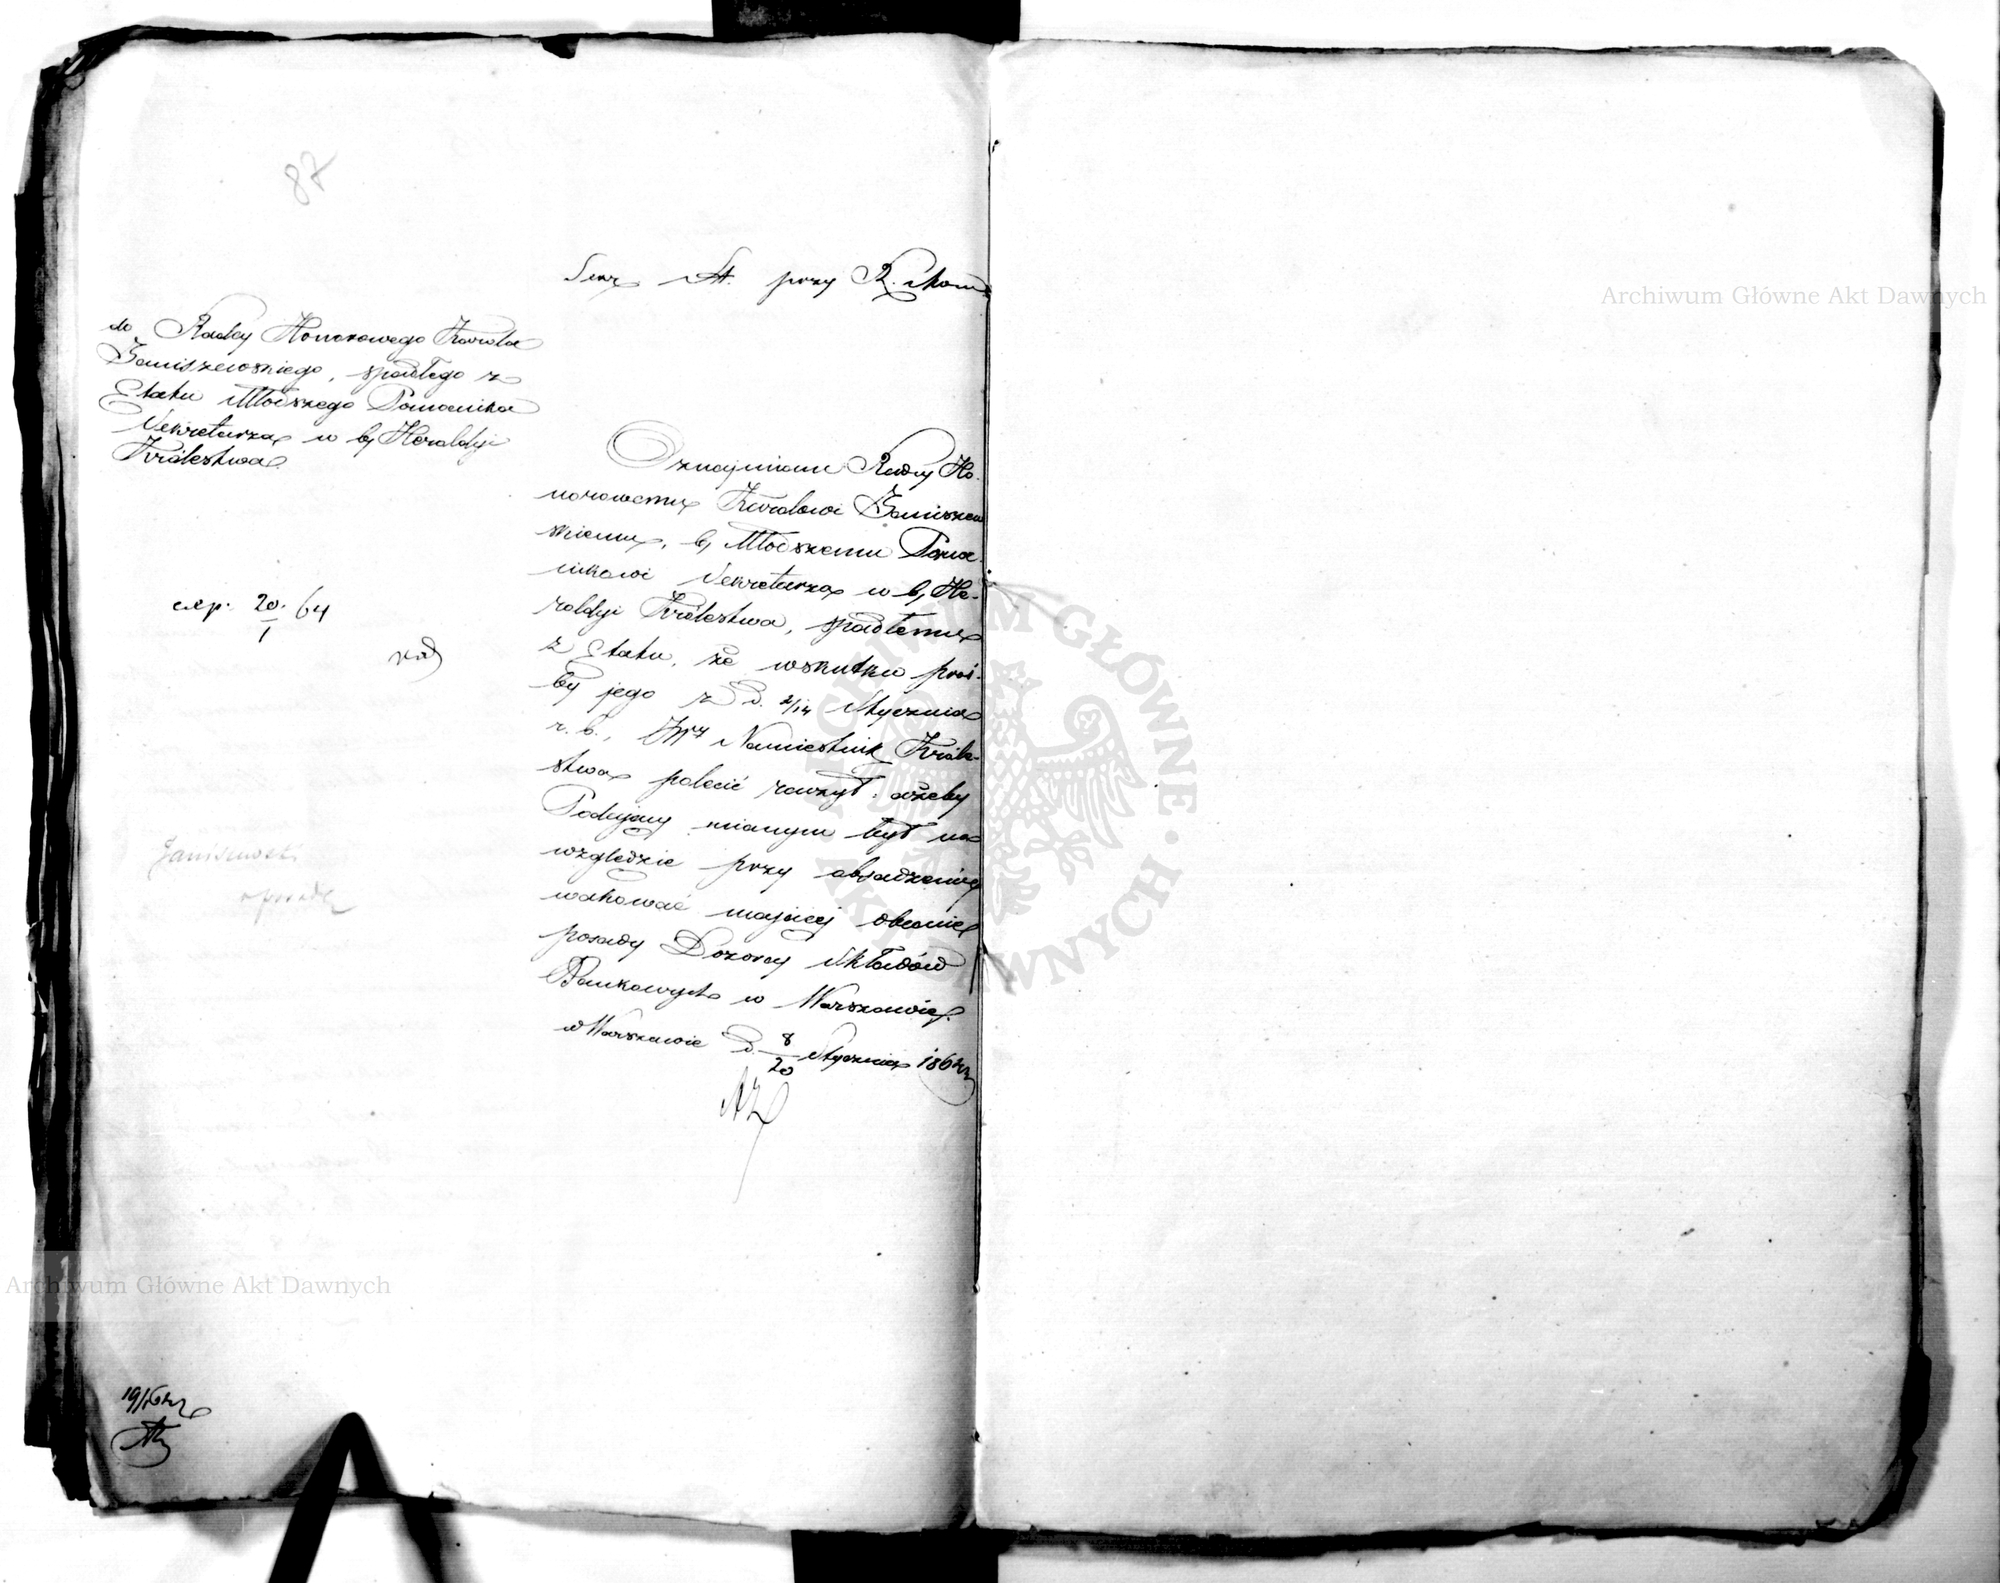 87
Sekr St. przy R. i Kom
do Radcy Honorowego Karola
Janiszewskiego, spadłego z
Etatu Młodszego Pomocnika
Sekretarza w b. Heroldyi
Królestwa
Oznajmiam Radcy Ho-
norowemu Karolowi Janiszew
skiemu, b. Młodszemu Pomoc-
nikowi Sekretarza w b. He-
roldyi Królestwa, spadłemu
z Etatu, że wskutku proś-
by jego z d. 2/14 Stycznia
r. b., JW Namiestnik Króle-
stwa polecić raczył: ażeby
Podający mianym był na
względzie przy obsadzeniu
wakować mającej obecnie
posady Dozorcy Składów
Bankowych w Warszawie.
w Warszawie d. 8/20 Stycznia 1864 r
exp. 20/1 64
Janiszewski
o posadę
19/1 64 r
Archiwum Główne Akt Dawnych
Archiwum Główne Akt Dawnych
ARCHIWUM GŁÓWNE AKT DAWNYCH